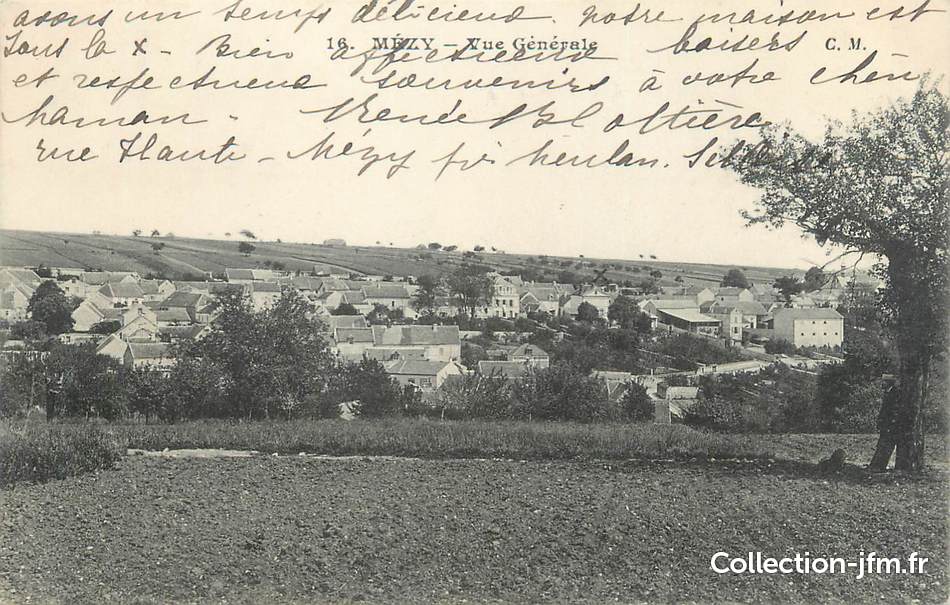 avons un temps délicieux. notre maison est
16. MÉZY - Vue Générale
C. M.
sous la x - Bien affectueux baisers
et respectueux souvenirs à votre chère
maman. Renée Blottière
rue Thaute - Mézy par Meulan.
Collection-jfm.fr